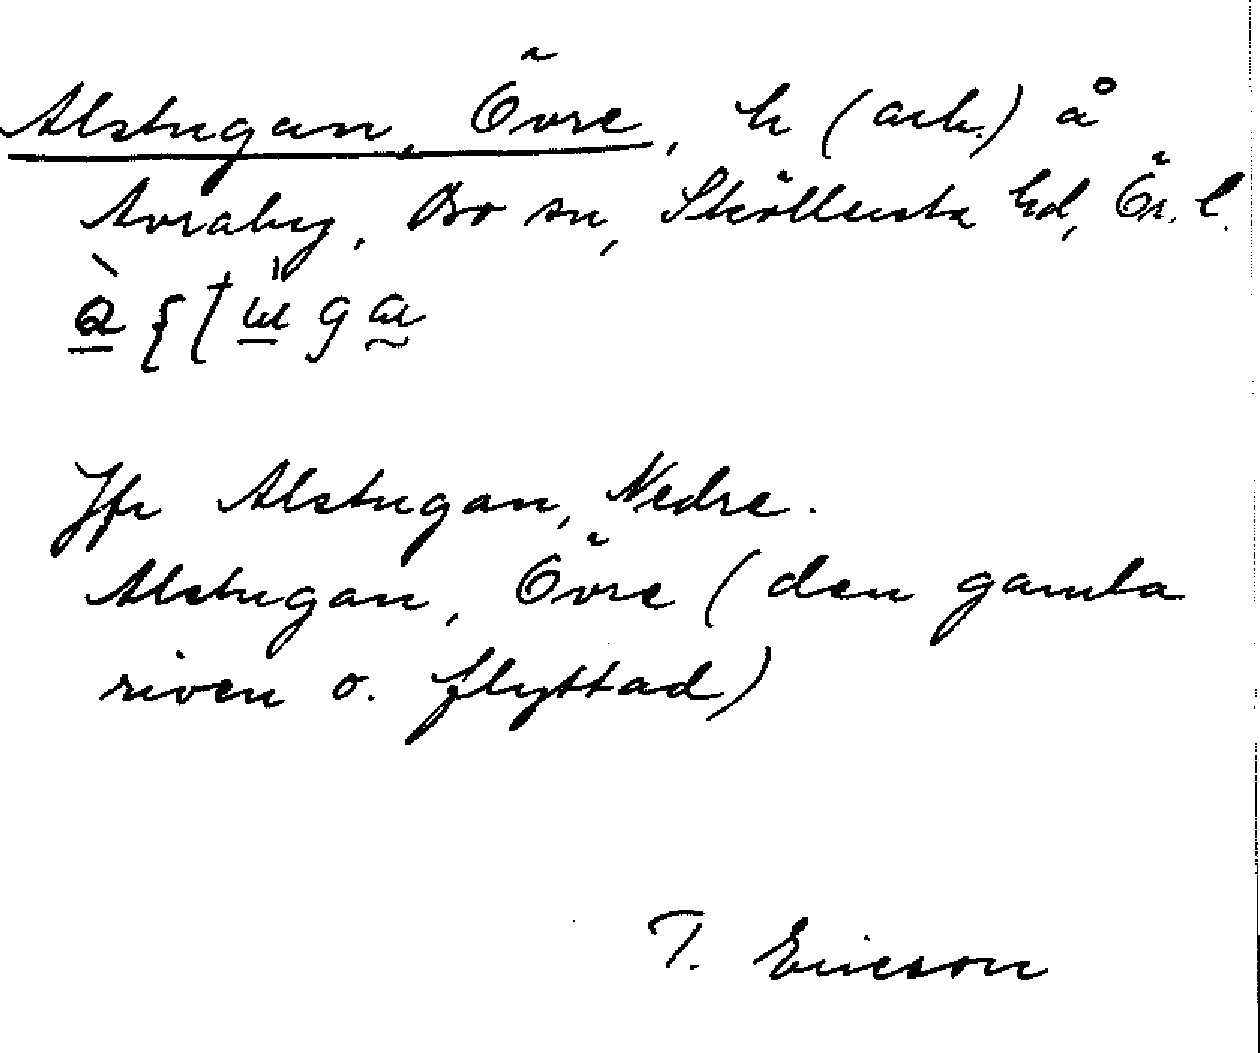 Alstugan, Övre, h (arb.) å
Avraby, Bo sn, Sköllersta hd, Ör. l.
Jfr Alstugan, Nedre.
Alstugan, Övre (den gamla
riven o. flyttad)
T. Ericson